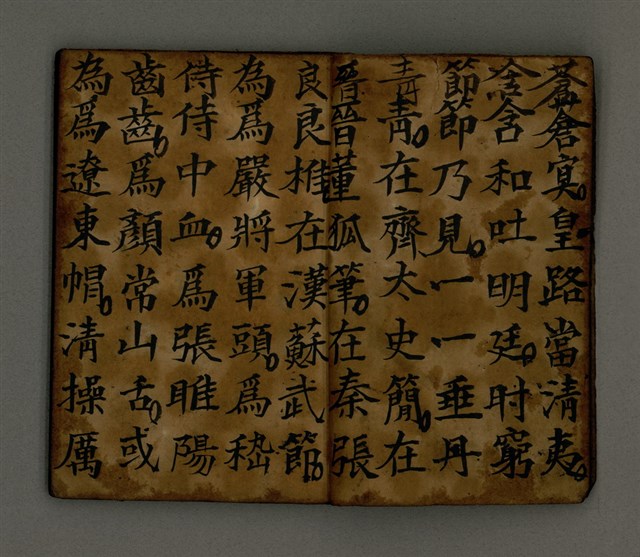 蒼蒼冥皇路當清夷
含含和吐明廷时窮
節節乃見一一垂丹
青青在齊太史簡在
晉晉董狐筆在秦張
良良推在漢蘇武節
為爲嚴將軍頭爲嵇
侍侍中血爲張睢陽
齒齒爲顏常山舌或
為爲遼東帽清操厲